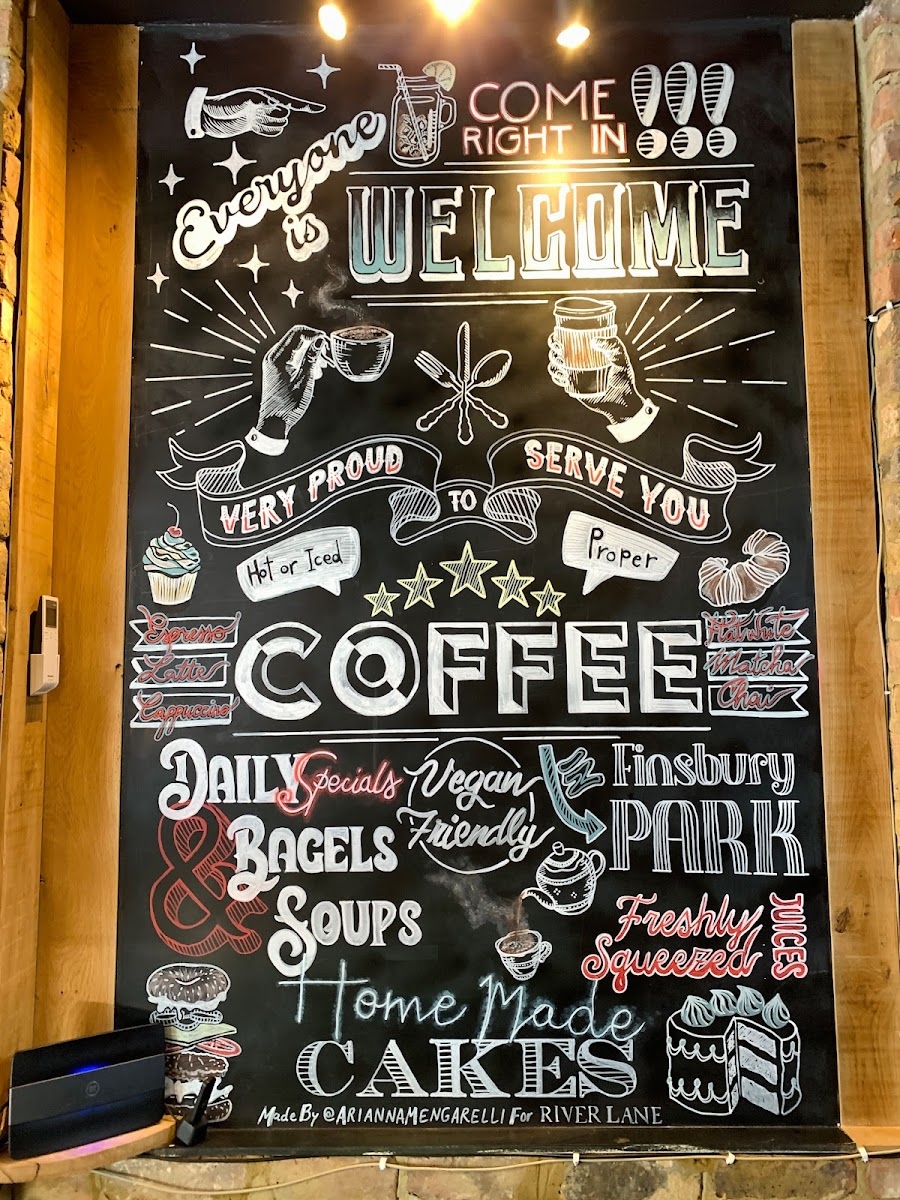 COME
RIGHT IN !!!
Everyone
is
WELCOME
VERY PROUD
TO
SERVE YOU
Hot or Iced
Proper
COFFEE
Espresso
Latte
Cappuccino
Flat Wite
Matcha
Chai
DAILY Specials
& BAGELS
SOUPS
Vegan
Friendly
in
Finsbury
PARK
Freshly
Squeezed
JUICES
Home Made
CAKES
Made By @ARIANNAMENGARELLI For RIVER LANE